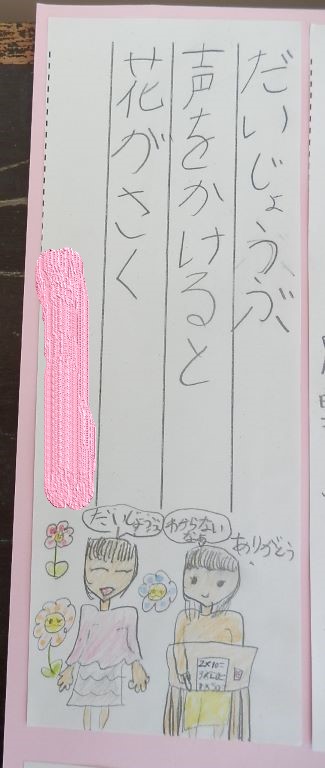 だいじょうぶ
声をかけると
花がさく
だいじょうぶ
わからない
なぁ
ありがとう
2×10=